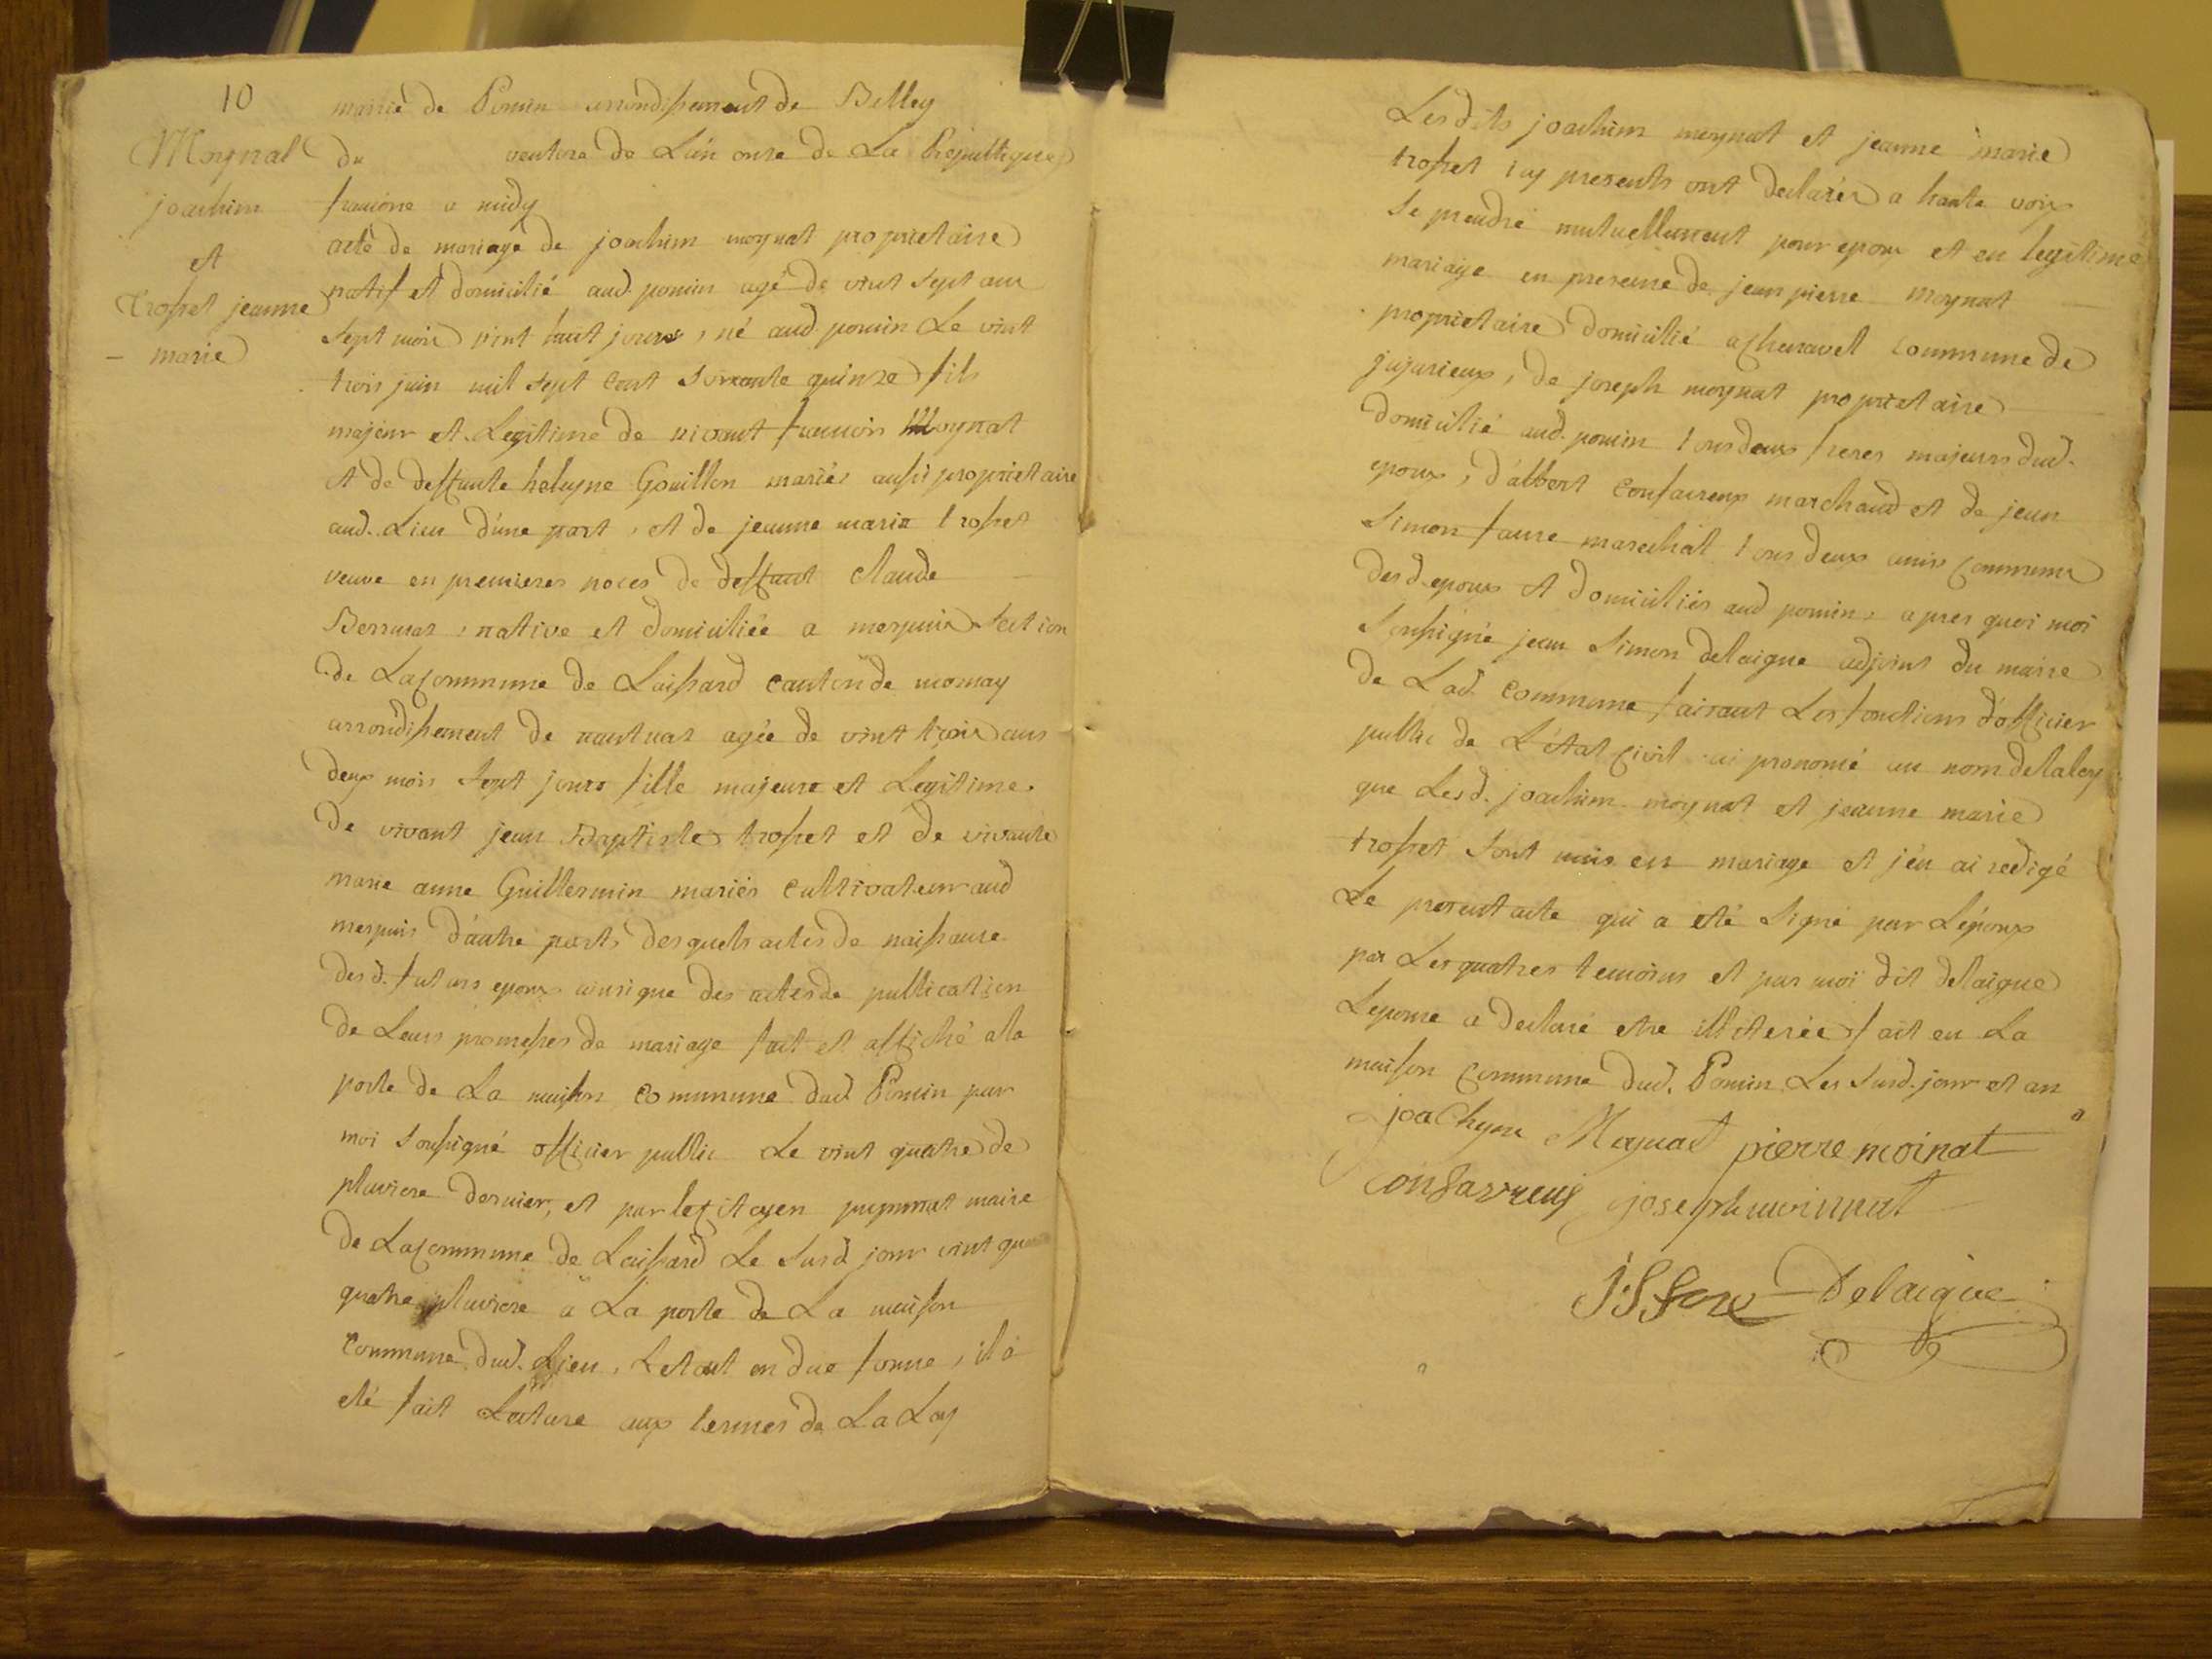 10
Moynat
joachim
et
trosset jeanne
marie
mairie de Poncin arrondissement de Belley
du ventose de L'an onze de La République
francoise a midy
acte de mariage de joachim moynat proprietaire
natif et domicilié aud. poncin agé de vint sept ans
sept mois vint huit jours, né aud poncin Le vint
trois juin mil sept cent soixante quinze fils
majeur et Legitime de vivant francois Moynat
et de deffunte heleyne Gouillon mariés aussi proprietaire
aud. Lieu d'une part, et de jeanne marie trosset
veuve en premieres noces de deffunt claude
native et domiciliée a merpuis section
de La commune de Laissard canton de
arrondissement de nantuaz agée de vint trois ans
deux mois sept jours fille majeure et Legitime
de vivant jean Baptiste trosset et de vivante
marie anne Guillermin mariés cultivateur aud
merpuis d'autre part, desquels actes de naissance
desd. futurs epoux ainsi que des actes de publication
de Leurs promesses de mariage fait et affiché a la
porte de La maison commune dud Poncin par
moi soussigné officier public Le vint quatre de
pluviose dernier, et par le citoyen maire
de La commune de Laissard Le susd jour vint
quatre pluviose a La porte de La maison
commune dud. Lieu, Le tout en due forme, il a
eté fait Lecture aux termes de La Loy
Lesdits joachim moynat et jeanne marie
trosset icy presents ont declarés a haute voix
se prendre mutuellement pour epoux et en legitime
mariage en presence de jean pierre moynat
proprietaire domicilié a chenavel commune de
jujurieux, de joseph moynat proprietaire
domicilié aud. poncin tous deux freres majeurs dud.
epoux, d'albert confavreux marchand et de jean
simon faure marechal tous deux amis communs
desd. epoux et domiciliés aud poncin, apres quoi moi
soussigné jean simon delaigue adjoint du maire
de Lad. commune faisant Les fonctions d'officier
public de L'état civil ai prononcé au nom de la loy
que Lesd. joachim moynat et jeanne marie
trosset sont unis en mariage et j'en ai redigé
Le present acte qui a eté signé par L'époux
par Les quatres temoins et par moi dit delaigue
L'epouse a declaré etre illiterée fait en La
maison commune dud. Poncin Les susd. jour et an
joachym Moynat pierre moinat
Confavreux joseph moinnat
JS fore Delaigue